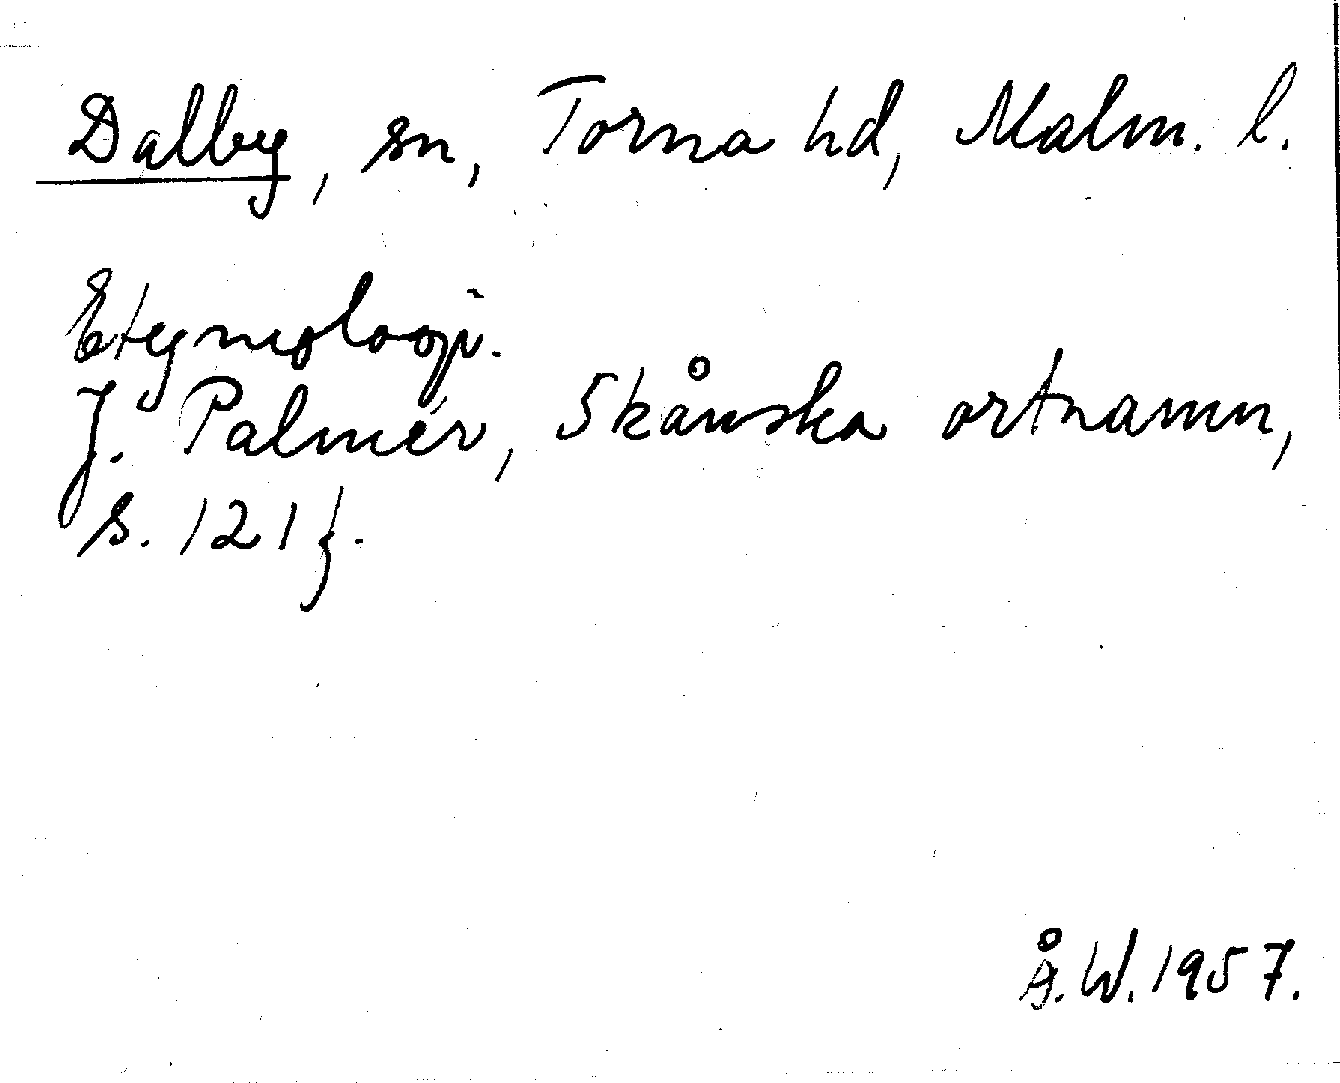 Dalby, sn, Torna hd, Malm. l.
Etymologi.
J. Palmér, Skånska ortnamn,
s. 121 f.
Å.W. 1957.